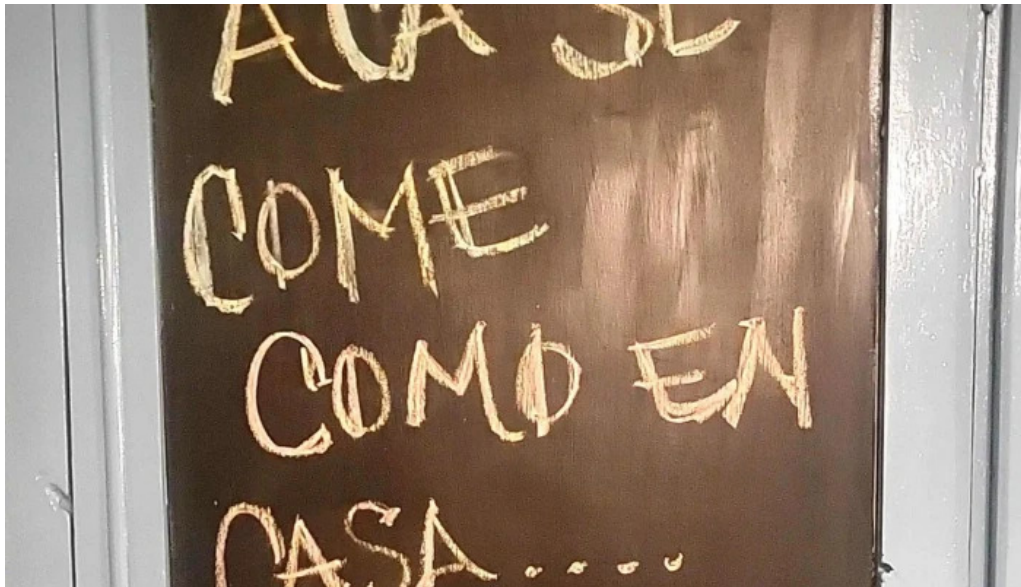 ACA SE
COME
COMO EN
CASA.....